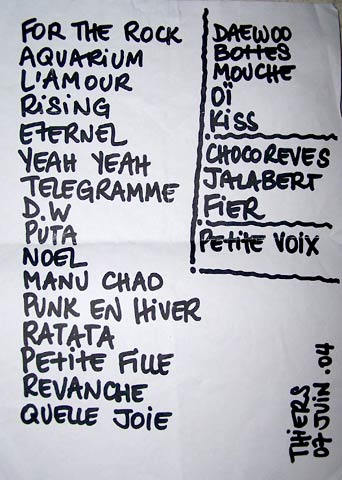 FOR THE ROCK
AQUARIUM
L'AMOUR
RISING
ETERNEL
YEAH YEAH
TELEGRAMME
D.W
PUTA
NOEL
MANU CHAO
PUNK EN HIVER
RATATA
PETITE FILLE
REVANCHE
QUELLE JOIE
DAEWOO
BOTTES
MOUCHE
OÏ
KISS
CHOCOREVES
JALABERT
FIER
PETITE VOIX
THIERS
07 JUIN .04